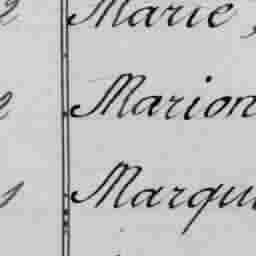 2 Marie,
2 Marion
1 Marqu